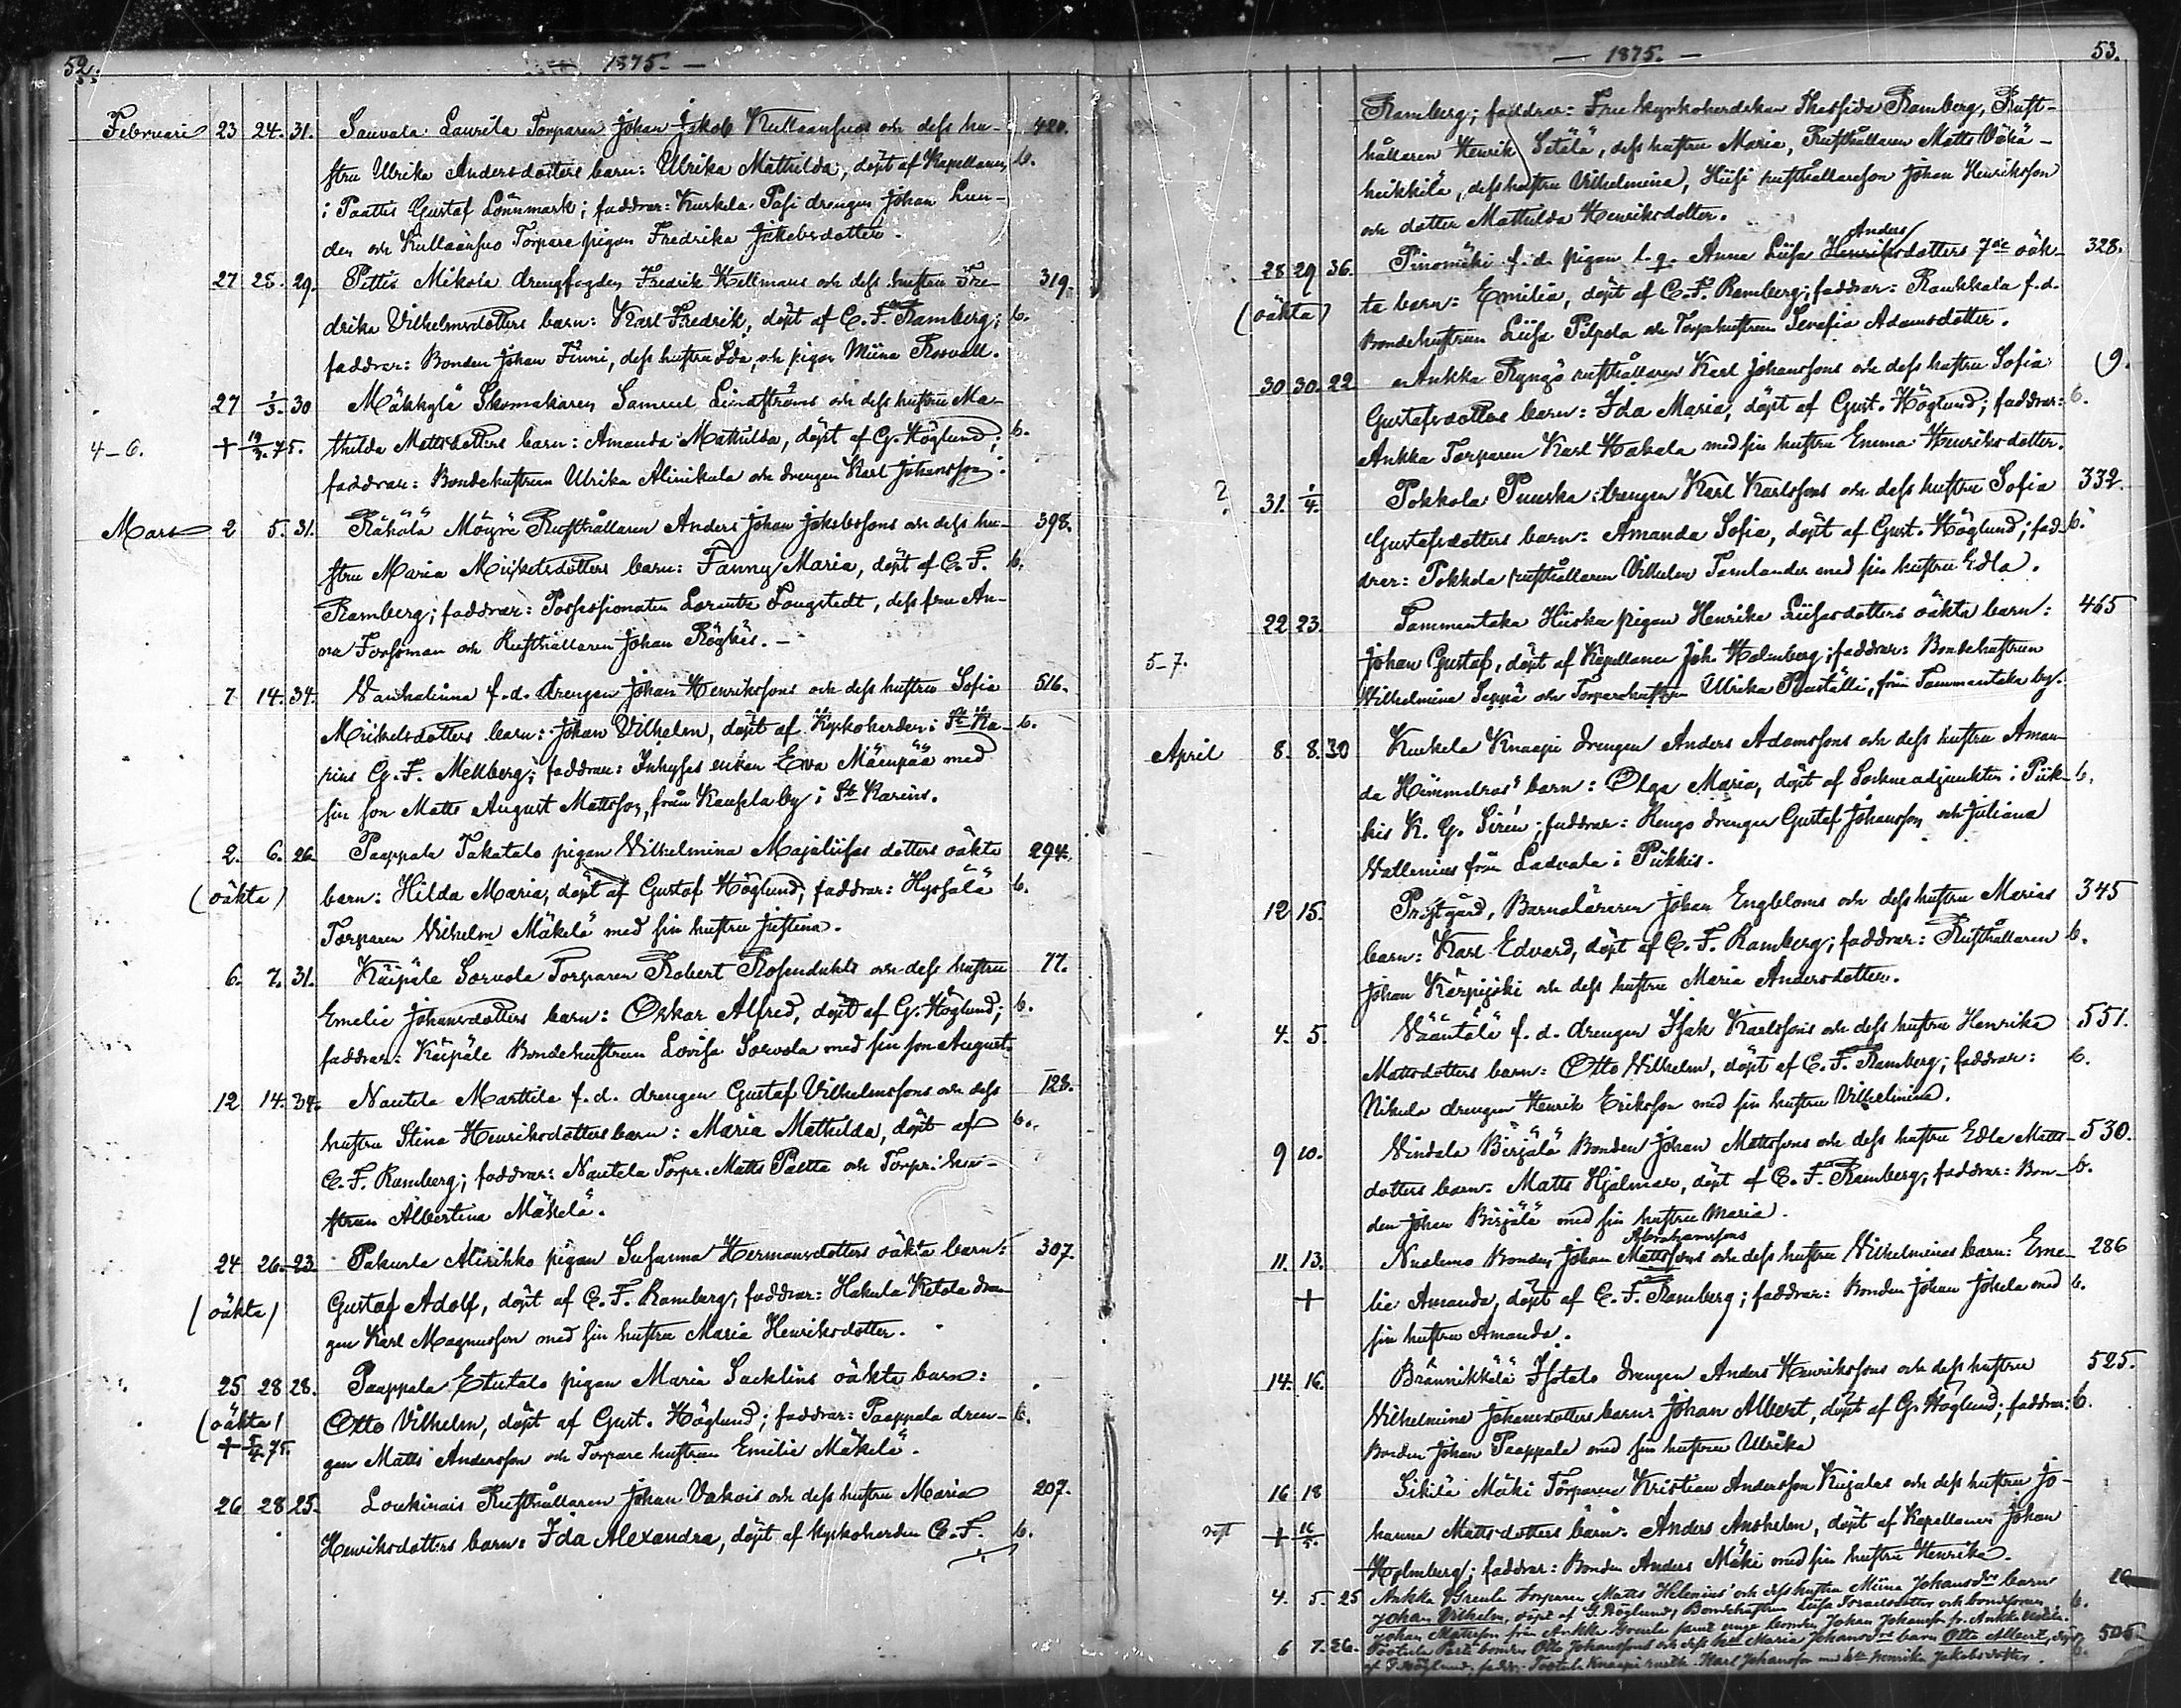 52.
— 1875. —
Februari 23 24. 31. Sauvala Laurila Torparen Johan Jakob Kullaansuos och dess hu- 420.
stru Ulrika Andersdotters barn: Ulrika Mathilda, döpt af Kapellanen b.
i Paattis Gustaf Lönnmark; faddrar: Kurkela Pasi drengen Johan Lun-
den och Kullaansuo Torpare pigan Fredrika Jakobsdotter.
27 28. 29. Pettis Mikola drengfogden Fredrik Hellmans och dess hustru Fre- 319.
drika Vilhelmsdotters barn: Karl Fredrik, döpt af C. F. Ramberg; b.
faddrar: Bonden Johan Finni, dess hustru Ida, och pigan Miina Rosvall.
27 1/3. 30 Mäkkylä Skomakaren Samuel Lindströms och dess hustru Ma-
4-6. + 19/3. 75. thilda Mattsdotters barn: Amanda Mathilda, döpt af G. Höglund; b.
faddrar: Bondehustrun Ulrika Alinikula och drengen Karl Johansson.
Mars 2 5. 31. Räkälä Möyri Rusthållaren Anders Johan Jakobssons och dess hu- 398.
stru Maria Mickelsdotters barn: Fanny Maria, döpt af C. F. b.
Ramberg; faddrar: Possessionaten Lorentz Fougstedt, dess fru An-
na Forsman och Rusthållaren Johan Röykis. —
7 14. 34. Vanhalinna f. d. drengen Johan Henrikssons och dess hustru Sofia 516.
Mickelsdotters barn: Johan Vilhelm, döpt af Kyrkoherden i St. Ka- b.
rins G. F. Mellberg; faddrar: Inhyses enkan Eva Mäenpää med
sin son Matts August Mattsson, från Kausela by i St. Karins.
2. 6. 26. Paappala Takatalo pigan Vilhelmina Majaliisas dotters oäkta 294.
(oäkta) barn: Hilda Maria, döpt af Gustaf Höglund; faddrar: Hyssälä b.
Torparen Vilhelm Mäkelä med sin hustru Justina.
6. 7. 31. Käipäle Sorvola Torparen Robert Rosendahls och dess hustru 77.
Emelie Johansdotters barn: Oskar Alfred, döpt af G. Höglund; b.
faddrar: Käipäle Bondehustrun Lovisa Sorvola med sin son August.
12 14. 34. Nautela Marttila f. d. drengen Gustaf Vilhelmssons och dess 128.
hustru Stina Henriksdotters barn: Maria Mathilda, döpt af b.
C. F. Ramberg; faddrar: Nautela Torpr. Matts Paetta och Torpr. hu-
strun Albertina Mäkelä.
24 26. 23. Pakurla Alirihko pigan Susanna Hermansdotters oäkta barn: 307.
(oäkta) Gustaf Adolf, döpt af C. F. Ramberg; faddrar: Hakula Ketola dren-
gen Karl Magnusson med sin hustru Maria Henriksdotter.
25 28 28. Paappala Etutalo pigan Maria Sacklins oäkta barn:
(oäkta) Otto Vilhelm, döpt af Gust. Höglund; faddrar: Paappala dren- b.
+ 5/4. 75. gen Matts Andersson och Torpare hustrun Emilie Mäkelä.
26 28 25. Loukinais Rusthållaren Johan Vakois och dess hustru Maria 207.
Henriksdotters barn: Ida Alexandra, döpt af kyrkoherden C. F. b.
— 1875. —
53.
Ramberg; faddrar: Fru kyrkoherdskan Ramberg, Rust-
hållaren Henrik Setälä, dess hustru Maria, Rusthållaren Matts Vähä-
heikkilä, dess hustru Vilhelmina, Hiisi rusthållareson Johan Henriksson
och dotter Mathilda Henriksdotter.
Anders
28 29 36. Pinomäki f. d. pigan l. q. Anna Liisa Henriksdotters 7de oäk- 328.
(oäkta) ta barn: Emilia, döpt af C. F. Ramberg; faddrar: Raukkala f. d.
Bondehustrun Liisa Pilpola och Torparhustrun Serafia Adamsdotter.
30 30. 22 Ankka Ryngö rusthållaren Karl Johanssons och dess hustru Sofia 9.
Gustafsdotters barn: Ida Maria, döpt af Gust. Höglund; faddrar: b.
Ankka Torparen Karl Hakala med sin hustru Emma Henriksdotter.
? 31. 1/4. Pokkola Puuska drengen Karl Karlssons och dess hustru Sofia 332.
Gustafsdotters barn: Amanda Sofia, döpt af Gust. Höglund; fad- b.
drar: Pokkola rusthållaren Vilhelm Tamlander med sin hustru Edla.
22 23. Tammentaka Hiiska pigan Henrika Liisasdotters oäkta barn: 465
5-7. Johan Gustaf, döpt af Kapellanen Joh. Holmberg; faddrar: Bondehustrun
Vilhelmina Seppä och Torparehustrun Ulrika Rantälli, från Tammentaka by.
April 8. 8. 30 Kurkela Knaapi drengen Anders Adamssons och dess hustru Aman-
da Himmelroos' barn: Olga Maria, döpt af Sockneadjunkten i Piik- b.
kis K. G. Sirén; faddrar: Rengo drengen Gustaf Johansson och Juliana
Vallenius från Ladvala i Piikkis.
12 15. Prestgård, Barnaläraren Johan Engbloms och dess hustru Marias 345
barn: Karl Edvard, döpt af C. F. Ramberg; faddrar: Rusthållaren b.
Johan Kärpijoki och dess hustru Maria Andersdotter.
4. 5. Vääntälä f. d. drengen Isak Karlssons och dess hustru Henrika 551.
Mattsdotters barn: Otto Vilhelm, döpt af C. F. Ramberg; faddrar: b.
Nikula drengen Henrik Eriksson med sin hustru Vilhelmina.
9 10. Vindala Birjälä Bonden Johan Mattssons och dess hustru Edla Matts- 530.
dotters barn: Matts Hjalmar, döpt af C. F. Ramberg; faddrar: Bon- b.
den Johan Birjälä med sin hustru Maria.
Abrahamssons
11. 13. Nuolemo Bonden Johan Mattssons och dess hustru Vilhelminas barn: Eme- 286
+ lie Amanda, döpt af C. F. Ramberg; faddrar: Bonden Johan Jokela med b.
sin hustru Amanda.
14. 16. Brännikkälä Isotalo drengen Anders Henrikssons och dess hustru 525.
Vilhelmina Johansdotters barn: Johan Albert, döpt af G. Höglund; faddrar: b.
Bonden Johan Paappala med sin hustru Ulrika
16 18 Sikilä Mäki Torparen Kristian Andersson Kujalas och dess hustru Jo-
+ 16/5. hanna Mattsdotters barn: Anders Anshelm, döpt af Kapellanen Johan
Holmberg; faddrar: Bonden Anders Mäki med sin hustru Henrika.
4. 5. 25 Ankka Greula torparen Matts Helenius' och dess hustru Miina Johansdrs barn
Johan Vilhelm, döpt af G. Höglund; Bondehustrun Liisa Israelsdotter och bondsonen b.
Johan Mattsson från Ankka Greula samt unge bonden Johan Johansson fr. Ankka
6 7. 26. Tootula Partti bonden Otto Johanssons och dess hustru Maria Johansdrs barn Otto Albert, döpt 505
af G. Höglund; faddr. Tootula Knaapi rusth. Karl Johansson med htr Henrika Jakobsdotter. b.